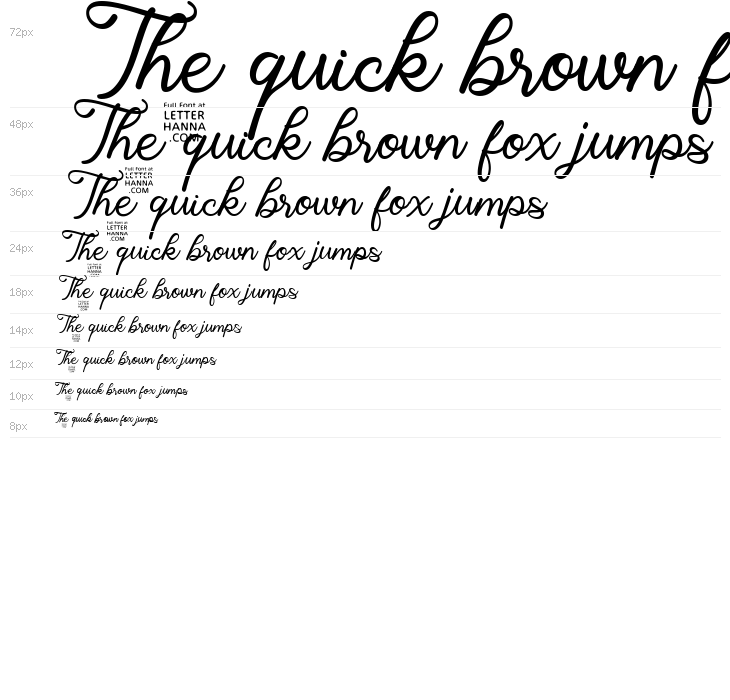 72px The quick brown f
Full Font at
LETTER
HANNA
.COM
48px The quick brown fox jumps
Full Font at
LETTER
HANNA
.COM
36px The quick brown fox jumps
Full Font at
LETTER
HANNA
.COM
24px The quick brown fox jumps
LETTER
HANNA
18px The quick brown fox jumps
14px The quick brown fox jumps
12px The quick brown fox jumps
10px The quick brown fox jumps
8px The quick brown fox jumps